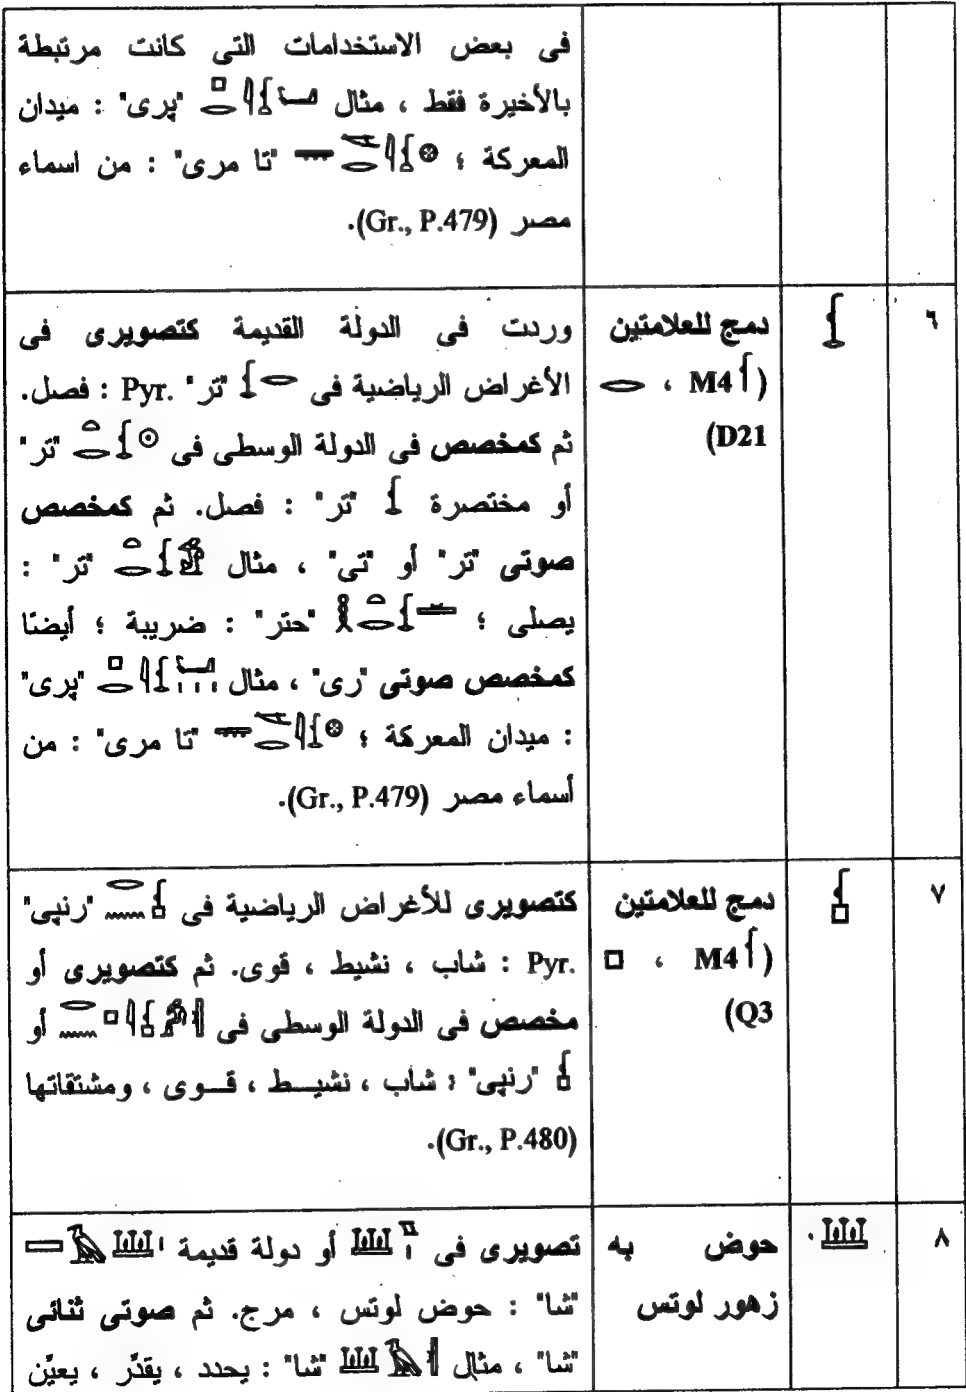 فى بعض الاستخدامات التى كانت مرتبطة
بالأخيرة فقط ، مثال "پرى" : ميدان
المعركة ؛ "تا مرى" : من اسماء
مصر (Gr., P.479).
٦
دمج للعلامتين
(M4 ،
D21)
وردت فى الدولة القديمة كتصويرى فى
الأغراض الرياضية فى "تر" Pyr. : فصل.
ثم كمخصص فى الدولة الوسطى فى "تر"
أو مختصرة "تر" : فصل. ثم كمخصص
صوتى "تر" أو "تى" ، مثال "تر" :
يصلى ؛ "حتر" : ضريبة ؛ أيضًا
كمخصص صوتى "رى" ، مثال "پرى"
: ميدان المعركة ؛ "تا مرى" : من
أسماء مصر (Gr., P.479).
٧
دمج للعلامتين
(M4 ،
Q3)
كتصويرى للأغراض الرياضية فى "رنپى"
Pyr. : شاب ، نشيط ، قوى. ثم كتصويرى أو
مخصص فى الدولة الوسطى فى أو
"رنپى" : شاب ، نشيـط ، قـوى ، ومشتقاتها
(Gr., P.480).
٨
حوض به
زهور لوتس
تصويرى فى أو دولة قديمة
"شا" : حوض لوتس ، مرج. ثم صوتى ثنائى
"شا" ، مثال "شا" : يحدد ، يقدَّر ، يعيَّن